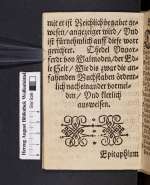 mit er ist Reichlich begabet ge-
wesen/angezeiget wird/ Und
ist fürnehmlich auff diese wort
gerichtet. Thedel Unvor-
ferdt von Walmoden/der Ed-
le Held/ Wie die zwar die an-
fahenden Buchstaben ordent-
lich nacheinander vormel-
den/ Und klerlich
ausweisen.
Epitaphium
Herzog August Bibliothek Wolfenbüttel